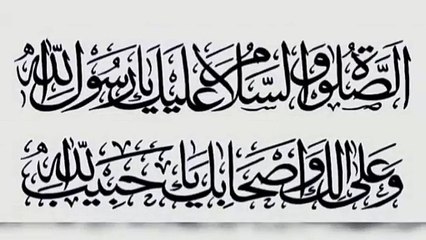 الصَّلٰوةُ والسَّلَامُ عَلَيْكَ يَا رَسُوْلَ اللّٰه
وَعَلٰى اٰلِكَ وَاَصْحَابِكَ يَا حَبِيْبَ اللّٰه